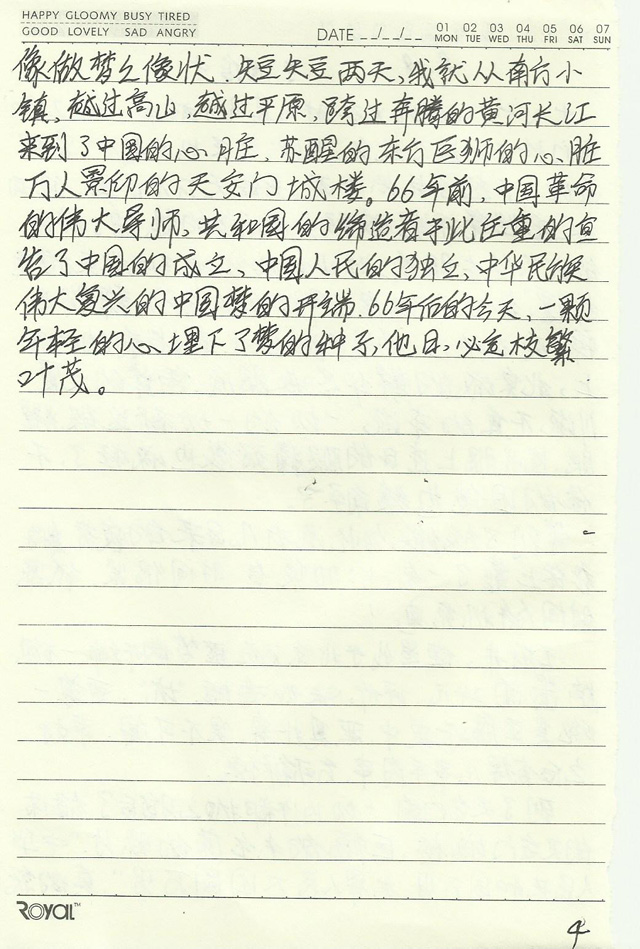 HAPPY GLOOMY BUSY TIRED
GOOD LOVELY SAD ANGRY
DATE __/__/__
01 02 03 04 05 06 07
MON TUE WED THU FRI SAT SUN
像做梦之像状.短短两天,我就从南方小
镇,越过高山,越过平原,跨过奔腾的黄河长江
来到了中国的心脏,苏醒的东方巨狮的心脏
万人景仰的天安门城楼。66年前,中国革命
的伟大导师,共和国的缔造者于此庄重的宣
告了中国的成立、中国人民的独立,中华民族
伟大复兴的中国梦的开端.66年后的今天,一颗
年轻的心埋下了梦的种子,他日,必定枝繁
叶茂。
ROYAL™
4